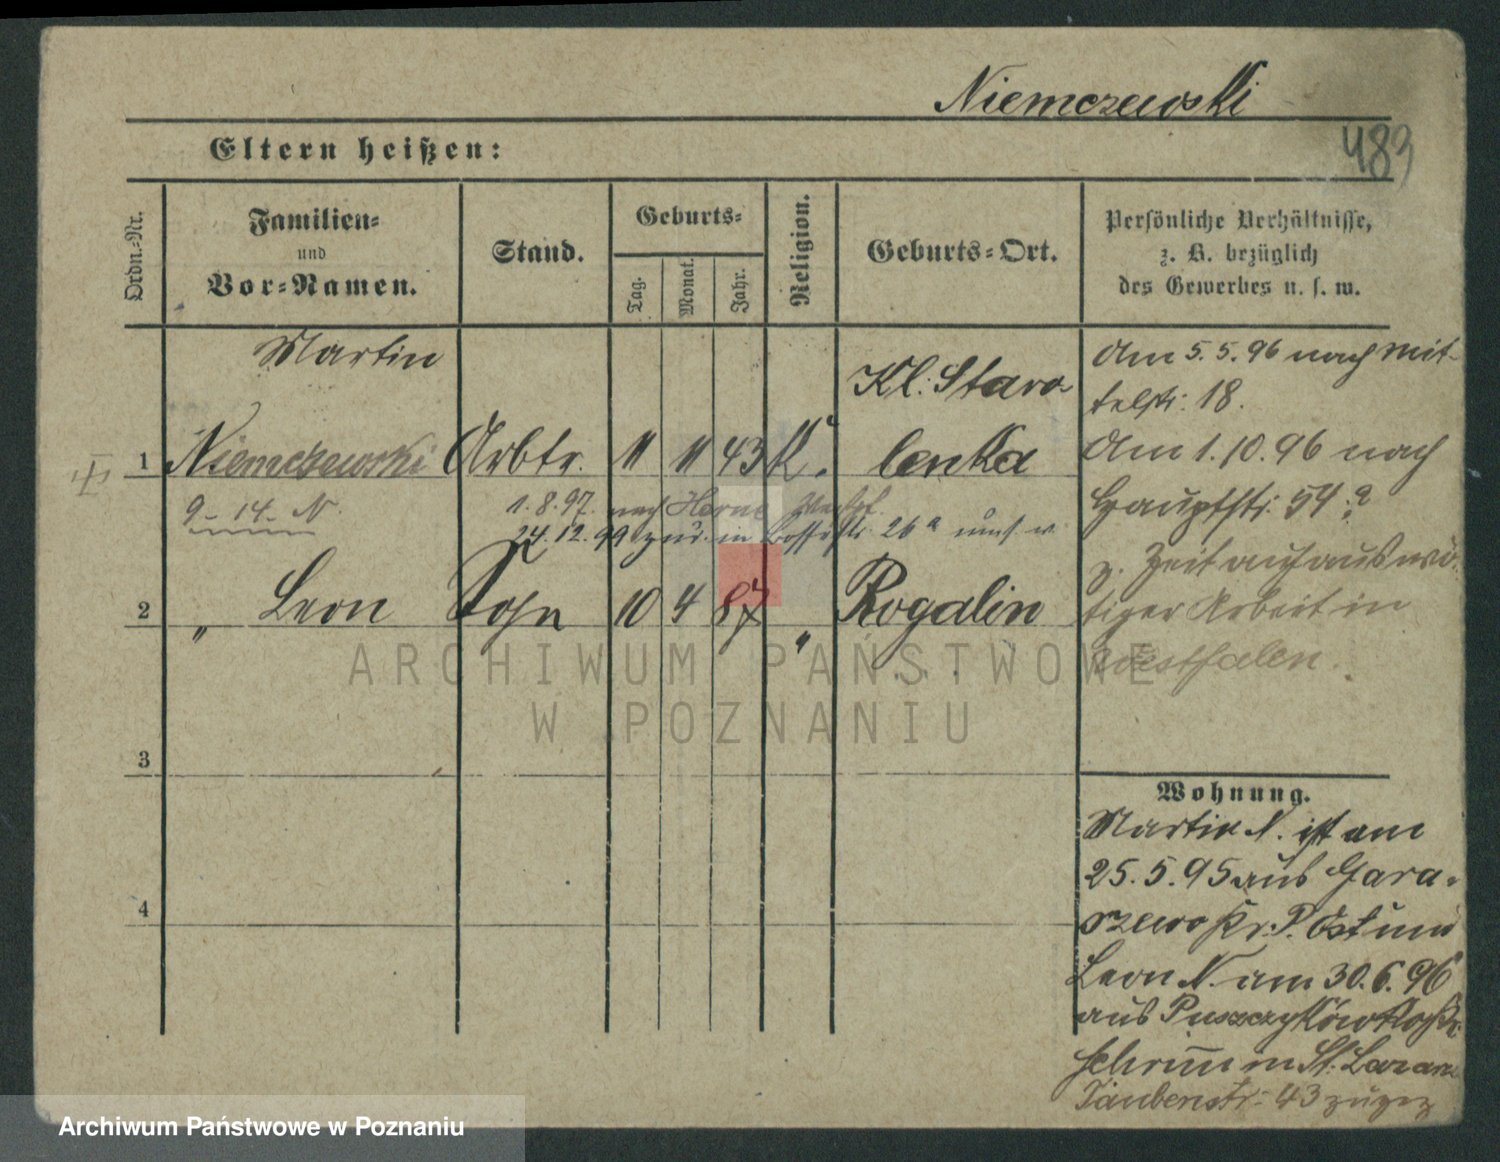 Niemczewski
483
Eltern heißen:
Ordn.-Nr.
Familien-
und
Vor-Namen.
Stand.
Geburts-
Tag.
Monat.
Jahr.
Religion.
Geburts-Ort.
Persönliche Verhältnisse,
z. B. bezüglich
des Gewerbes u. s. w.
Martin
1 Niemczewski Arbtr. " " 43 K.
Kl. Staro-
lenka
9 - 14. N.
1.8.97. nach Herne
24.12.99 zur. in 26a
2 " Leon Sohn 10 4 87 " Rogalin
3
4
Am 5.5.96 nach Mit-
telstr: 18.
Am 1.10.96 nach
Hauptstr: 54
z. Zeit auf auswär-
tiger Arbeit in
Westfalen.
Wohnung.
Martin N. ist am
25.5.95 aus Gara-
szewo Kr. P. Ost und
Leon N. am 30.6.96
aus Puszczykówko Kr.
Schrimm in St. Lazarus
Taubenstr: 43 zugez
ARCHIWUM PAŃSTWOWE
W POZNANIU
Archiwum Państwowe w Poznaniu